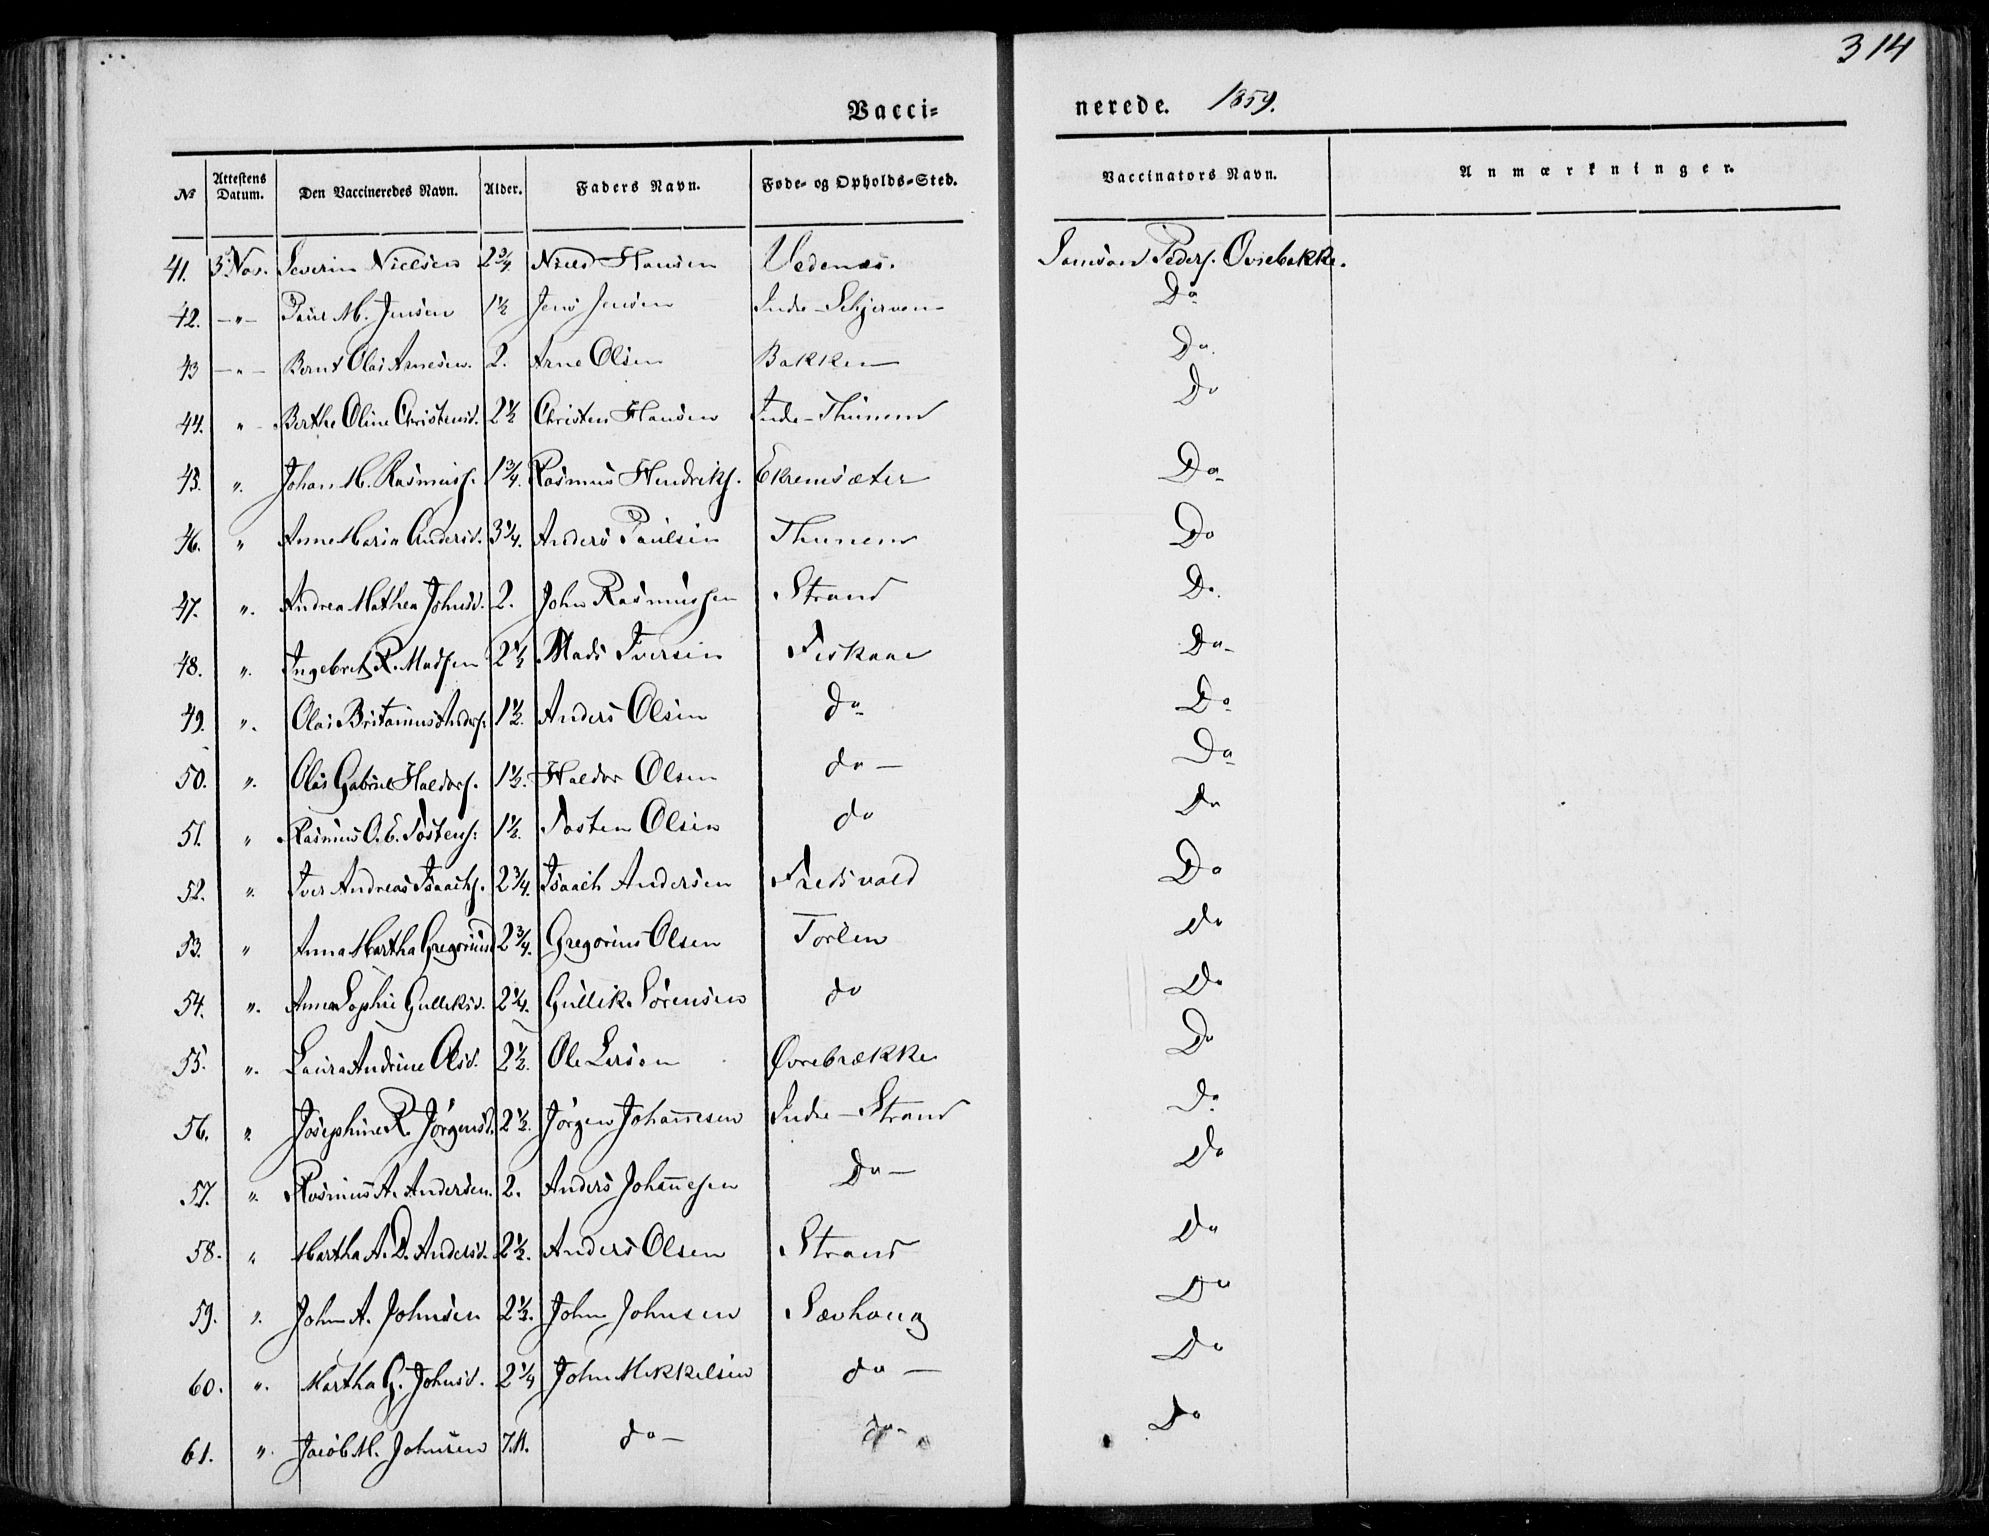 314
Vacci-nerede. 1859.
No Attestens Datum. Den Vaccineredes Navn. Alder. Faders Navn. Føde- og Opholds-Sted. Vaccinators Navn. Anmærkninger.
41. 3. Nov. Severin Nielsen 2 3/4. Niels Hansen Vedenæs. Samson Peders. Øvrebække.
42. -"- Paul M. Jensen 1 1/2 Jens Jensen Indre-Schjerven Do
43 -"- Bernt Olai Arnesen. 2. Arne Olsen Bakken Do.
44. " Berthe Oline Christensd. 2 1/2 Christen Hansen Indre-Thunem Do
45. ". Johan M. Rasmuss. 1 3/4. Rasmus Hendriks. Ekremsæter Do
46. " Anne Maria Andersd. 3 1/4. Anders Paulsen Thunem Do
47. ". Andrea Mathea Johnsd. 2. John Rasmussen Strand Do.
48. ". Ingebret R. Madsen 2 1/2 Mads Iversen Fiskaae Do-
49. ". Olai Britanius Anders. 1 1/2. Anders Olsen do Do
50. ". Olai Gabriel Haldors. 1 1/2. Haldor Olsen do - Do
51. " Rasmus O. E. Tostens. 1 1/2. Tosten Olsen do Do
52. ". Iver Andreas Isaachs. 2 3/4. Isaach Andersen Fredsvold Do
53. " Anna Martha Gregoriusd 2 3/4. Gregorius Olsen Torlen Do
54. ". Anne Sophie Gulliksd. 2 1/4. Gullik Sørensen do Do
55. ". Laura Andrine Olsd. 2 1/2. Ole Larsen Øvrebrække Do
56. ". Josephine R. Jørgensd. 2 1/2. Jørgen Johannesen Indre-Strand Do
57. ". Rasmus A. Andersen. 2. Anders Johannesen Do - Do
58. " Martha A. D. Andersd. 2 1/2. Anders Olsen Strand Do
59. ". John A. Johnsen 2 1/2. John Johnsen Sævhoug Do
60. ". Martha G. Johnsd. 2 1/4 John Mikkelsen do - Do
61. ". Jacob M. Johnsen 7 M. do - do - Do